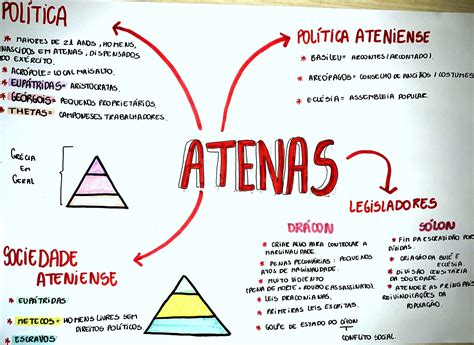 POLÍTICA
* MAIORES DE 21 ANOS, HOMENS,
NASCIDOS EM ATENAS, DISPENSADOS
DO EXÉRCITO.
* ACRÓPOLE = LOCAL MAIS ALTO.
* EUPÁTRIDAS = ARISTOCRATAS.
* GEÓRGOIS = PEQUENOS PROPRIETÁRIOS.
* THETAS = CAMPONESES TRABALHADORES.
POLÍTICA ATENIENSE
* BASILEU = ARCONTES (ARCONTADO).
* AREÓPAGOS = CONSELHO DE ANCIÕES / COSTUMES
* ECLÉSIA = ASSEMBLEIA POPULAR.
GRÉCIA
EM
GERAL
ATENAS
LEGISLADORES
DRÁCON
* CRIAR ALGO PARA CONTROLAR A
MARGINALIDADE.
* PENAS PECUNIÁRIAS = PEQUENOS
ATOS DE MARGINALIDADE.
* MUITO VIOLENTO
(PENA DE MORTE, ROUBO E ASSASSINATO).
* LEIS DRACONIANAS.
* PRIMEIRAS LEIS ESCRITAS.
* GOLPE DE ESTADO DO
CONFLITO SOCIAL
SÓLON
* FIM DA ESCRAVIDÃO POR
DÍVIDAS.
* CRIAÇÃO DA BULÉ E
ECLÉSIA.
* DIVISÃO CENSITÁRIA
DA SOCIEDADE.
* ATENDER AS PRINCIPAIS
REIVINDICAÇÕES DA
POPULAÇÃO.
SOCIEDADE
ATENIENSE
* EUPÁTRIDAS
* METECOS = HOMENS LIVRES SEM
DIREITOS POLÍTICOS.
* ESCRAVOS